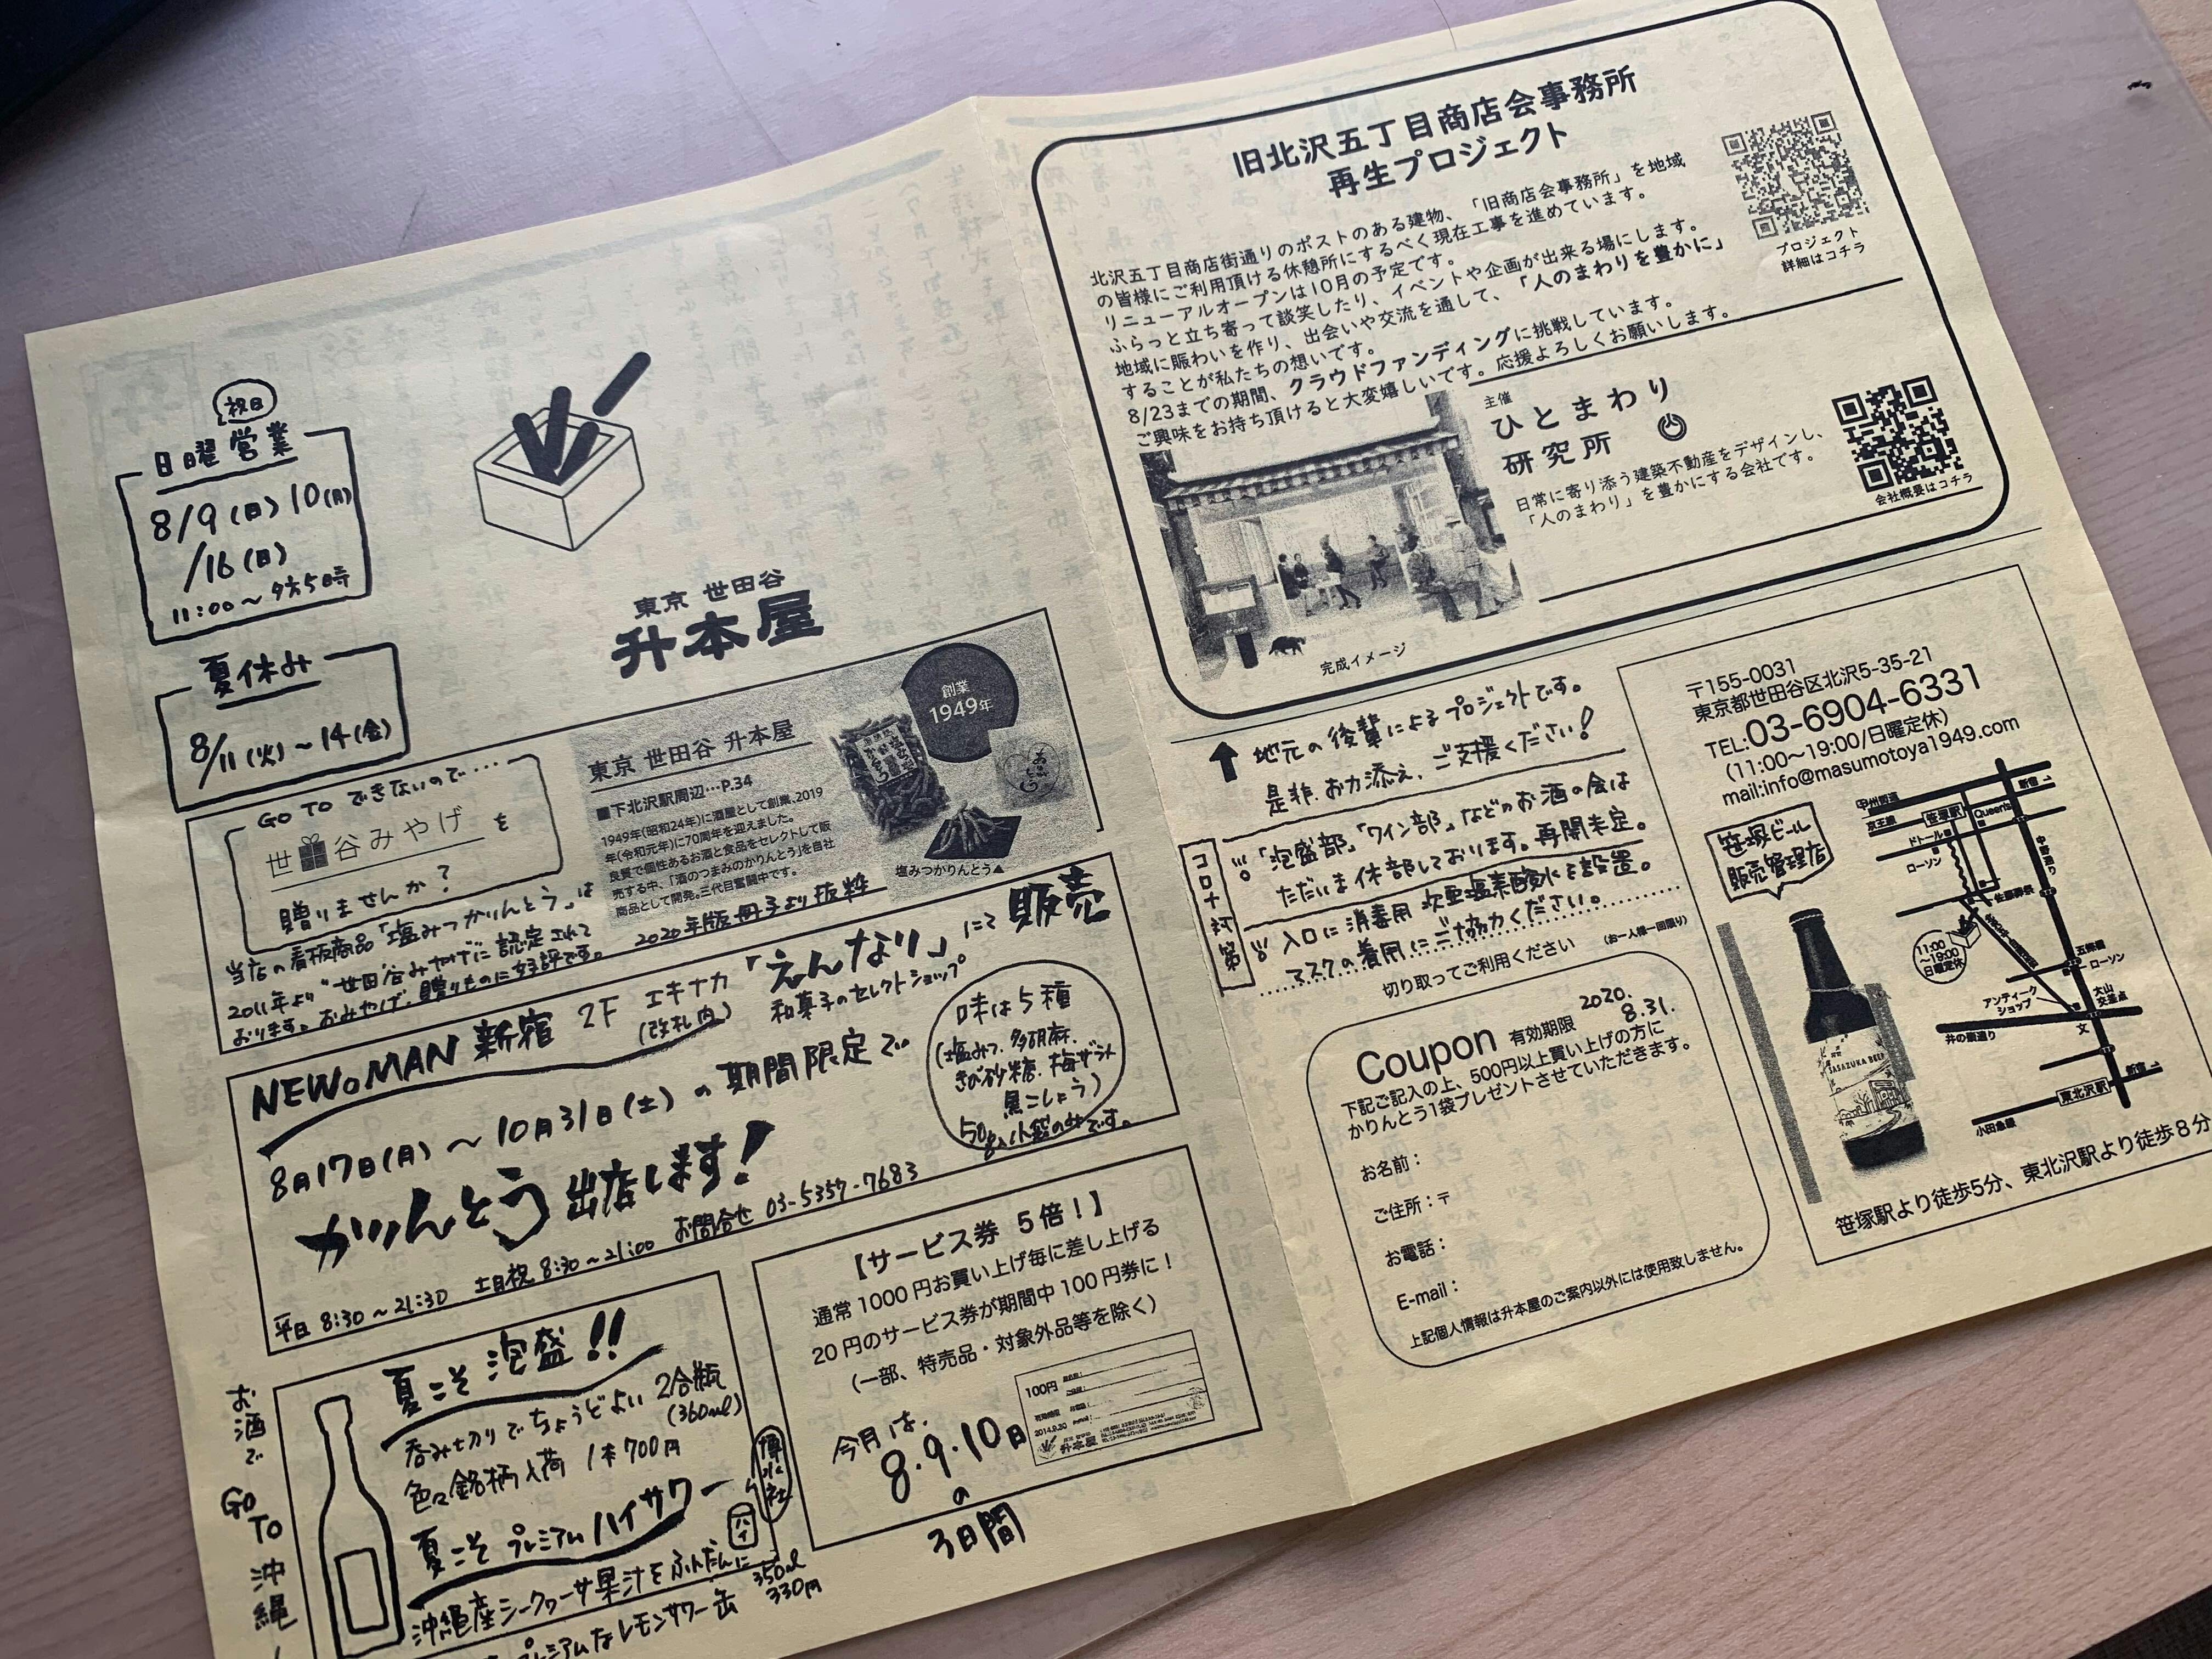 祝日
日曜営業
8/9(日) 10(月)
/16(日)
11:00〜夕方5時
夏休み
8/11(火)〜14(金)
東京 世田谷
升本屋
GO TO できないので・・・・
世谷みやげを
贈りませんか?
当店の看板商品「塩みつかりんとう」は
2011年より"世田谷みやげに認定されて
おります。おみやげ、贈りものに好評です。
東京 世田谷 升本屋
■下北沢駅周辺…P.34
1949年(昭和24年)に酒屋として創業、2019
年(令和元年)に70周年を迎えました。
良質で個性あるお酒と食品をセレクトして販
売する中、「酒のつまみのかりんとう」を自社
商品として開発。三代目奮闘中です。
創業
1949年
塩みつかりんとう▲
2020年版冊子より抜粋
NEWoMAN 新宿 2F エキナカ「えんなり」にて販売
(改札内) 和菓子のセレクトショップ
8月17日(月)〜10月31日(土)の期間限定で
かりんとう出店します!
味は5種
(塩みつ、多胡麻、
きび砂糖、梅ザラメ
黒こしょう)
50g入小袋のみです。
平日 8:30〜21:30 土日祝 8:30〜21:00 お問合せ 03-5357-7683
お酒で GO TO 沖縄
夏こそ泡盛!!
呑み切りでちょうどよい 2合瓶
(360ml)
色々銘柄入荷 1本700円
夏こそプレミアムハイサワー
博水社
ハイ
沖縄産シークヮーサ果汁をふんだんに
プレミアムなレモンサワー缶 350ml
330円
【サービス券 5倍!】
通常1000円お買い上げ毎に差し上げる
20円のサービス券が期間中100円券に!
(一部、特売品・対象外品等を除く)
100円
2014.9.30
升本屋
今月は、
8.9.10日
の
3日間
旧北沢五丁目商店会事務所
再生プロジェクト
北沢五丁目商店街通りのポストのある建物、「旧商店会事務所」を地域
の皆様にご利用頂ける休憩所にするべく現在工事を進めています。
リニューアルオープンは10月の予定です。
ふらっと立ち寄って談笑したり、イベントや企画が出来る場にします。
地域に賑わいを作り、出会いや交流を通して、「人のまわりを豊かに」
することが私たちの想いです。
8/23までの期間、クラウドファンディングに挑戦しています。
ご興味をお持ち頂けると大変嬉しいです。応援よろしくお願いします。
プロジェクト
詳細はコチラ
主催
ひとまわり
研究所
日常に寄り添う建築不動産をデザインし、
「人のまわり」を豊かにする会社です。
会社概要はコチラ
完成イメージ
↑地元の後輩によるプロジェクトです。
是非、お力添え、ご支援ください!
コロナ対策
「泡盛部」「ワイン部」などのお酒の会は
ただいま休部しております。再開未定。
入口に消毒用 次亜塩素酸水を設置。
マスクの着用にご協力ください。
切り取ってご利用ください (お一人様一回限り)
Coupon 有効期限 2020.
8.31.
下記ご記入の上、500円以上買い上げの方に
かりんとう1袋プレゼントさせていただきます。
お名前:
ご住所:〒
お電話:
E-mail:
上記個人情報は升本屋のご案内以外には使用致しません。
〒155-0031
東京都世田谷区北沢5-35-21
TEL:03-6904-6331
(11:00〜19:00/日曜定休)
mail:info@masumotoya1949.com
笹塚ビール
販売管理店
SASAZUKA BEER
甲州街道
京王線
笹塚駅
Queen's
新宿
ドトール
ローソン
中野通り
11:00
〜19:00
日曜定休
五條橋
ローソン
アンティーク
ショップ
大山
交差点
文
井の頭通り
東北沢駅
新宿
小田急線
笹塚駅より徒歩5分、東北沢駅より徒歩8分